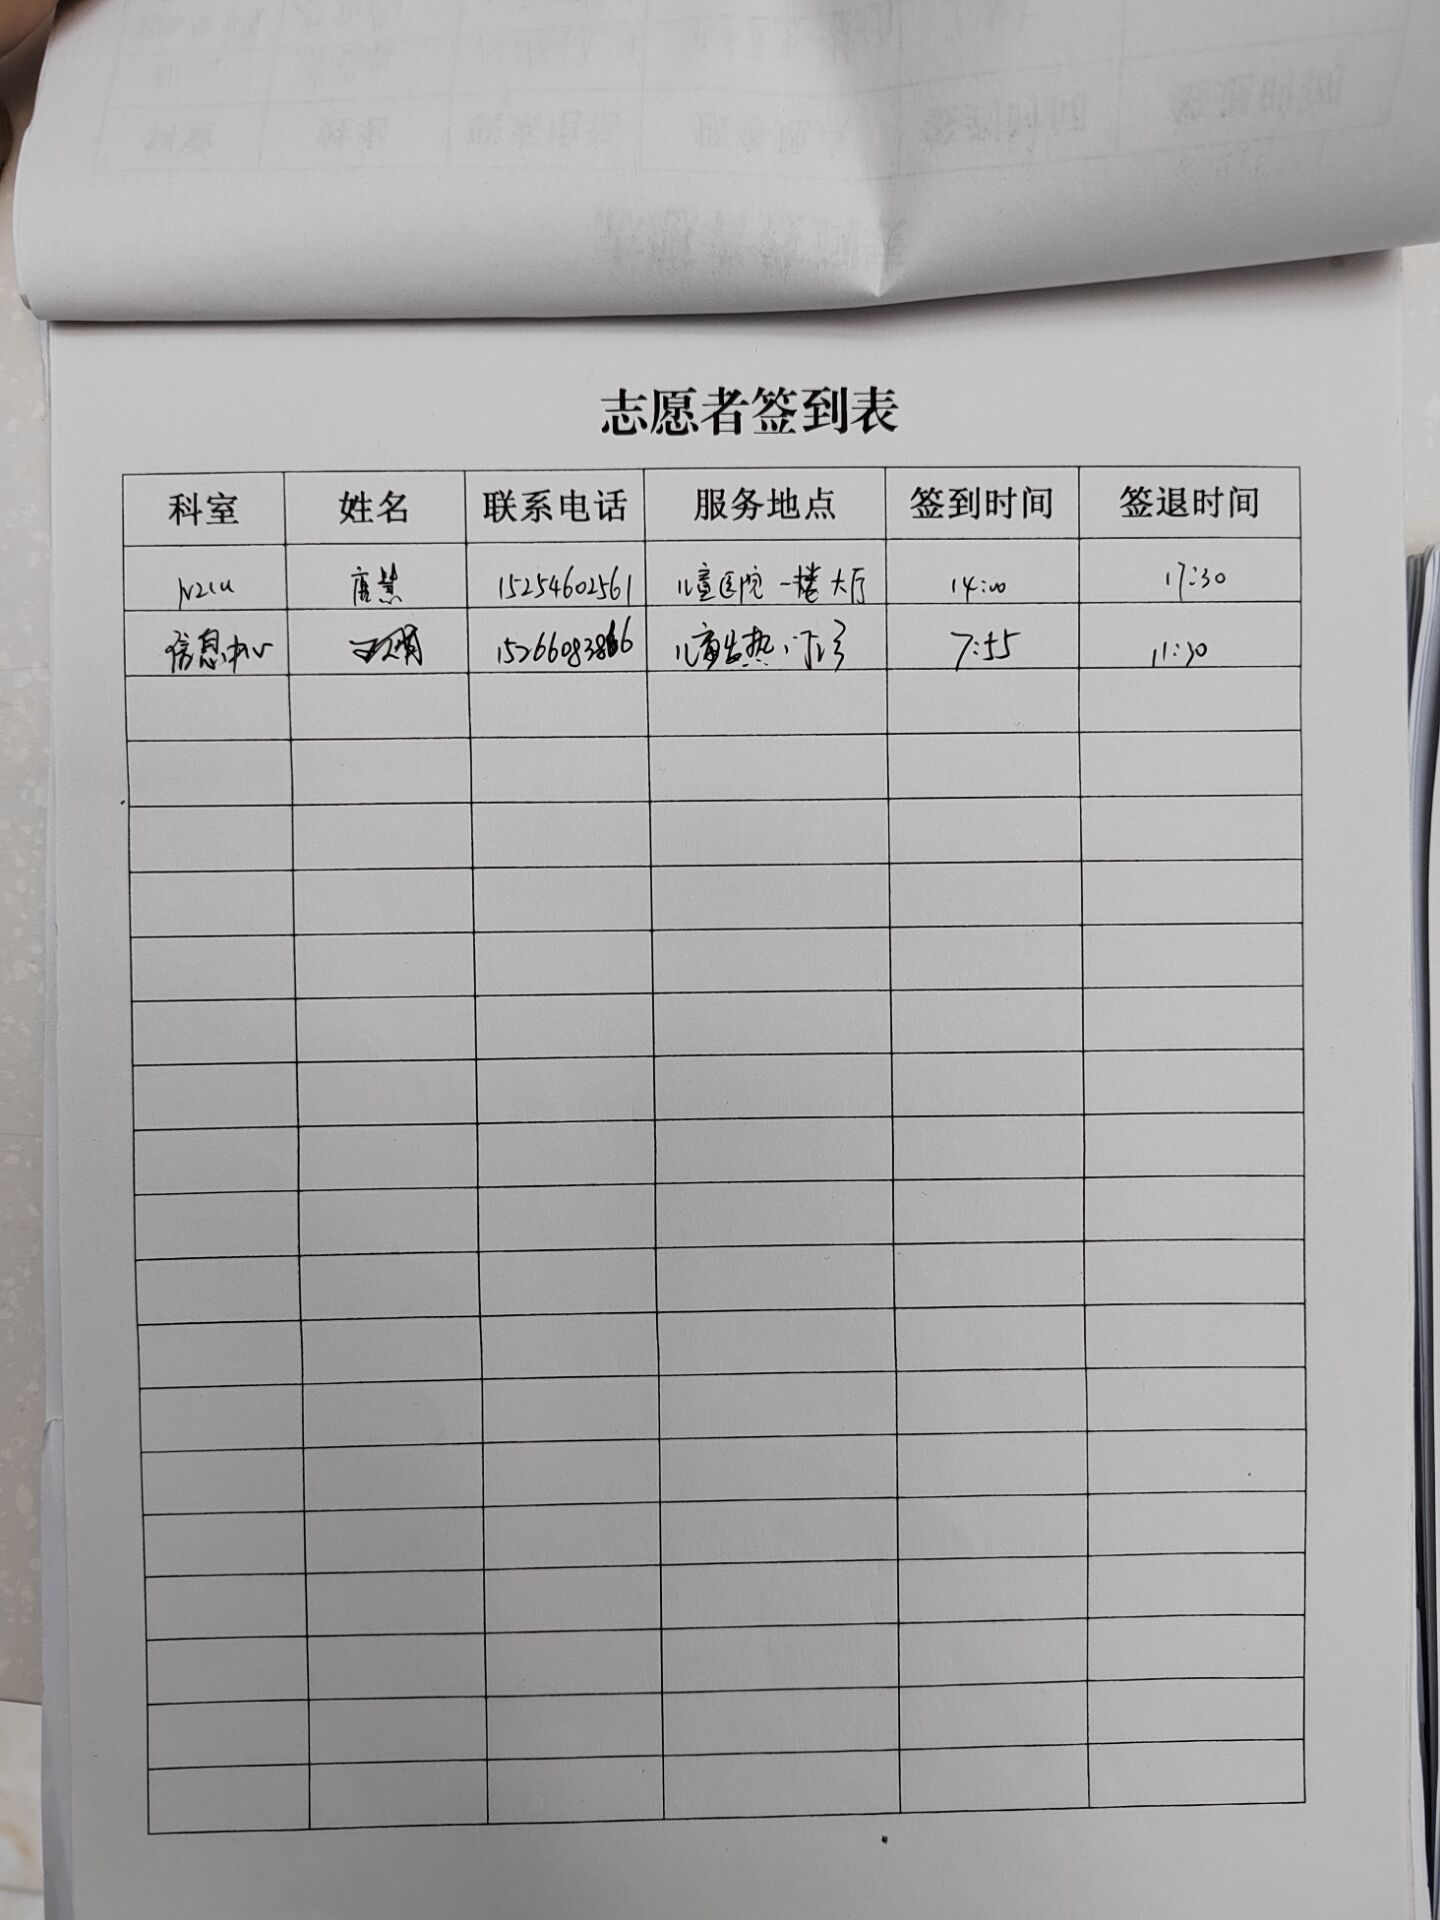 志愿者签到表
科室 姓名 联系电话 服务地点 签到时间 签退时间
唐慧 15254602561 儿童医院一楼大厅 14:00 17:30
信息中心 152660838 儿童发热门诊 7:55 11:30